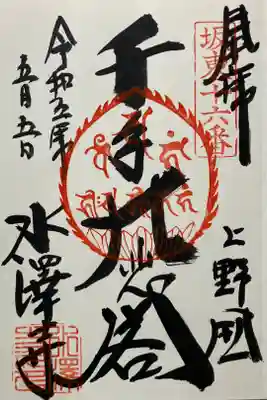 奉拝
坂東十六番
上野國
千手大悲閣
令和五年
五月五日
水澤寺